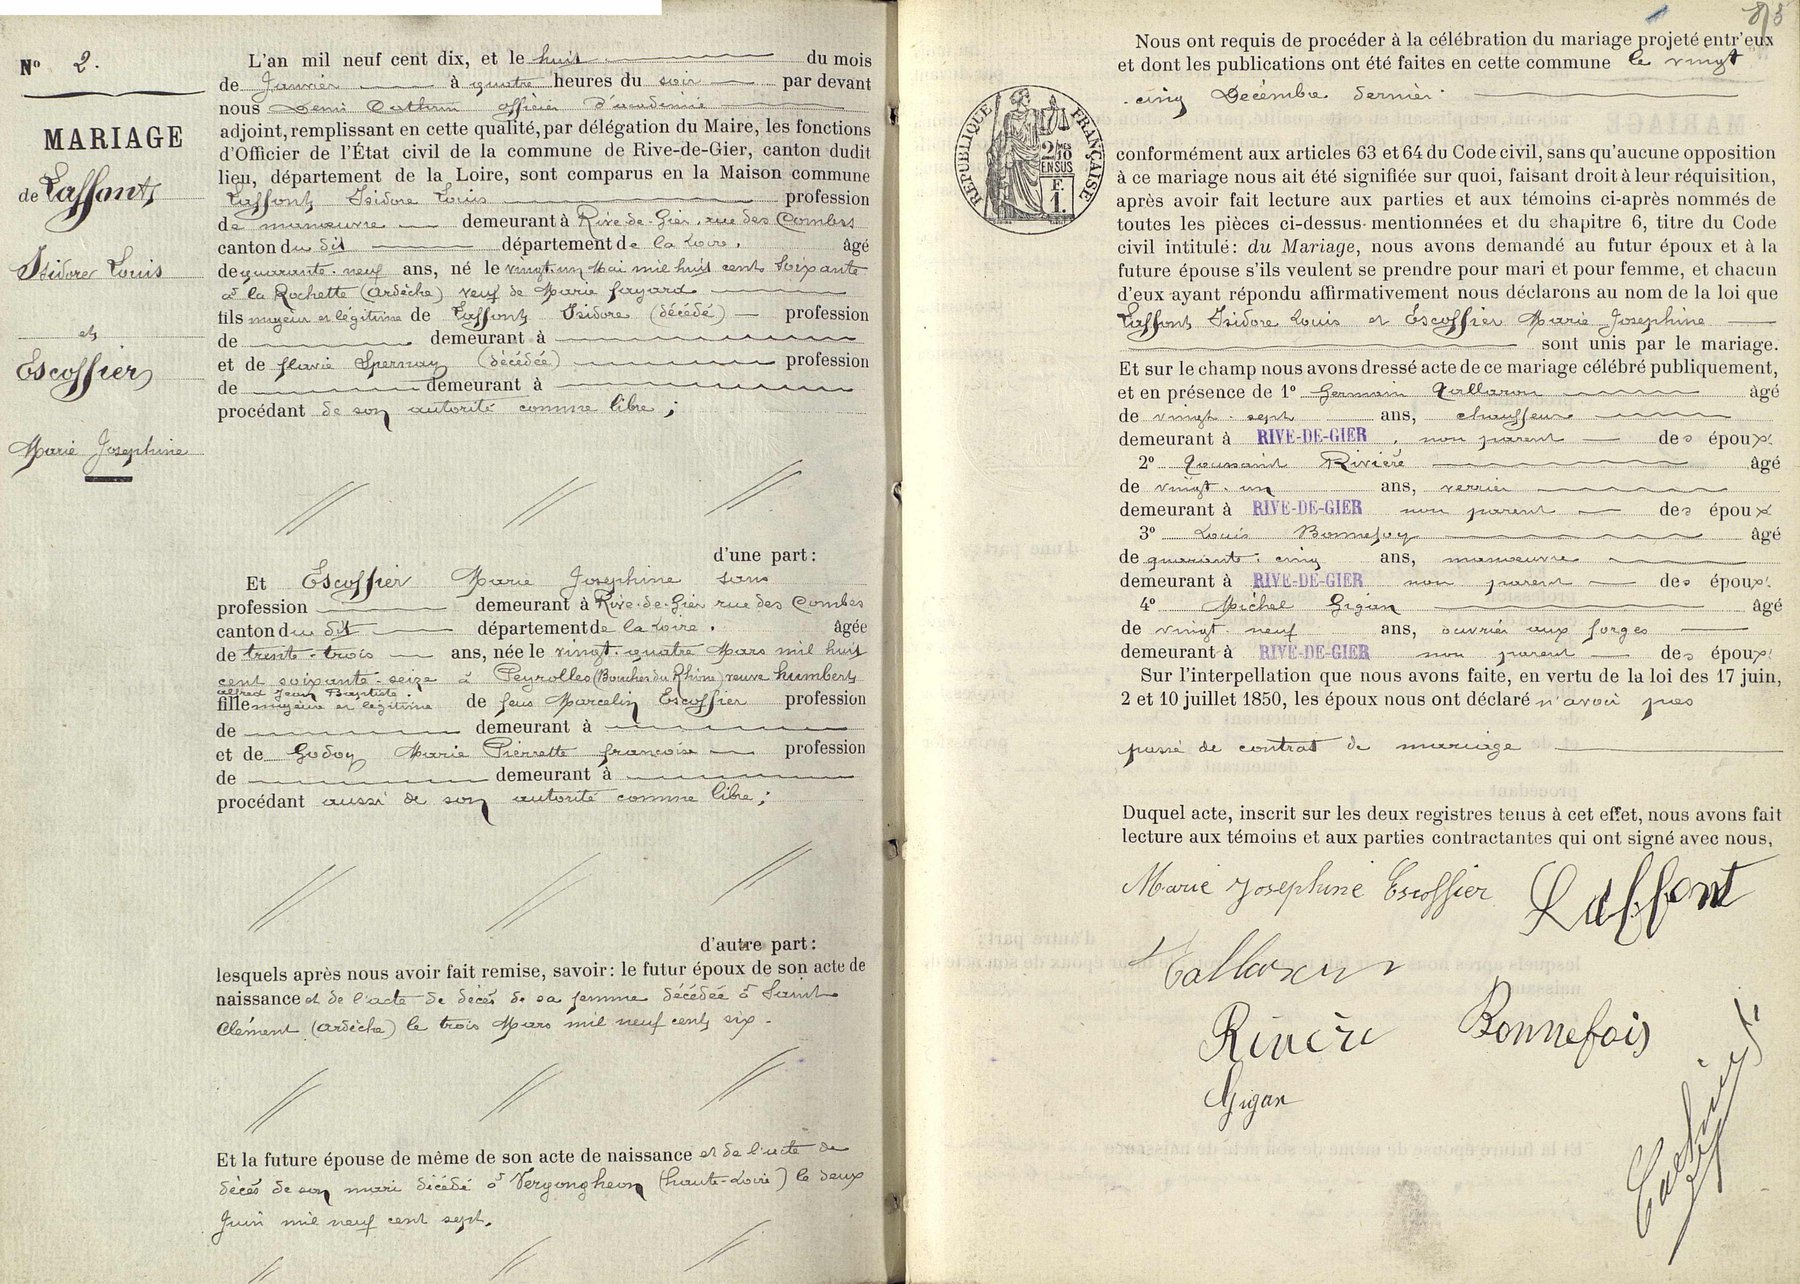 N° 2.
MARIAGE
de Laffont
Isidore Louis
et
Escoffier
Marie Josephine
L'an mil neuf cent dix, et le huit du mois
de Janvier à quatre heures du soir par devant
nous officier d'académie
adjoint, remplissant en cette qualité, par délégation du Maire, les fonctions
d'Officier de l'État civil de la commune de Rive-de-Gier, canton dudit
lieu, département de la Loire, sont comparus en la Maison commune
Laffont Isidore Louis profession
de manœuvre demeurant à Rive-de-Gier, rue des Combes
canton du dit département de la Loire, âgé
de quarante-neuf ans, né le vingt-un Mai mil huit cent soixante
à la Rochette (Ardèche) veuf de Marie Fayard
fils majeur et légitime de Laffont Isidore (décédé) profession
de demeurant à
et de flavie Spernay (décédée) profession
de demeurant à
procédant de son autorité comme libre;
d'une part:
Et Escoffier Marie Josephine sans
profession demeurant à Rive-de-Gier rue des Combes
canton du dit département de la Loire. âgée
de trente-trois ans, née le vingt-quatre Mars mil huit
cent soixante-seize à Peyrolles (Bouches du Rhône) veuve humbert
alfred Jean Baptiste.
fille majeure et légitime de feus Marcelin Escoffier profession
de demeurant à
et de Godoy Marie Pierrette françoise profession
de demeurant à
procédant aussi de son autorité comme libre;
d'autre part:
lesquels après nous avoir fait remise, savoir: le futur époux de son acte de
naissance et de l'acte de décès de sa femme décédée à Saint
Clément (Ardèche) le trois Mars mil neuf cent six.
Et la future épouse de même de son acte de naissance et de l'acte de
décès de son mari décédé à Vergongheon (haute-Loire) le deux
Juin mil neuf cent sept.
Nous ont requis de procéder à la célébration du mariage projeté entr'eux
et dont les publications ont été faites en cette commune le vingt
cinq Décembre dernier.
RÉPUBLIQUE FRANÇAISE
2/10 MES
EN SUS
F.
1.
conformément aux articles 63 et 64 du Code civil, sans qu'aucune opposition
à ce mariage nous ait été signifiée sur quoi, faisant droit à leur réquisition,
après avoir fait lecture aux parties et aux témoins ci-après nommés de
toutes les pièces ci-dessus mentionnées et du chapitre 6, titre du Code
civil intitulé: du Mariage, nous avons demandé au futur époux et à la
future épouse s'ils veulent se prendre pour mari et pour femme, et chacun
d'eux ayant répondu affirmativement nous déclarons au nom de la loi que
Laffont Isidore Louis et Escoffier Marie Josephine
sont unis par le mariage.
Et sur le champ nous avons dressé acte de ce mariage célébré publiquement,
et en présence de 1° Germain Tallaron âgé
de vingt-sept ans, chauffeur
demeurant à RIVE-DE-GIER, non parent des époux
2° Toussaint Rivière âgé
de vingt-un ans, verrier
demeurant à RIVE-DE-GIER non parent des époux
3° Louis Bonnefoy âgé
de quarante-cinq ans, manœuvre
demeurant à RIVE-DE-GIER non parent des époux
4° Michel Gigan âgé
de vingt-neuf ans, ouvrier aux forges
demeurant à RIVE-DE-GIER non parent des époux
Sur l'interpellation que nous avons faite, en vertu de la loi des 17 juin,
2 et 10 juillet 1850, les époux nous ont déclaré n'avoir pas
passé de contrat de mariage
Duquel acte, inscrit sur les deux registres tenus à cet effet, nous avons fait
lecture aux témoins et aux parties contractantes qui ont signé avec nous,
Marie Josephine Escoffier Laffont
Tallaron
Rivière Bonnefois
Gigan